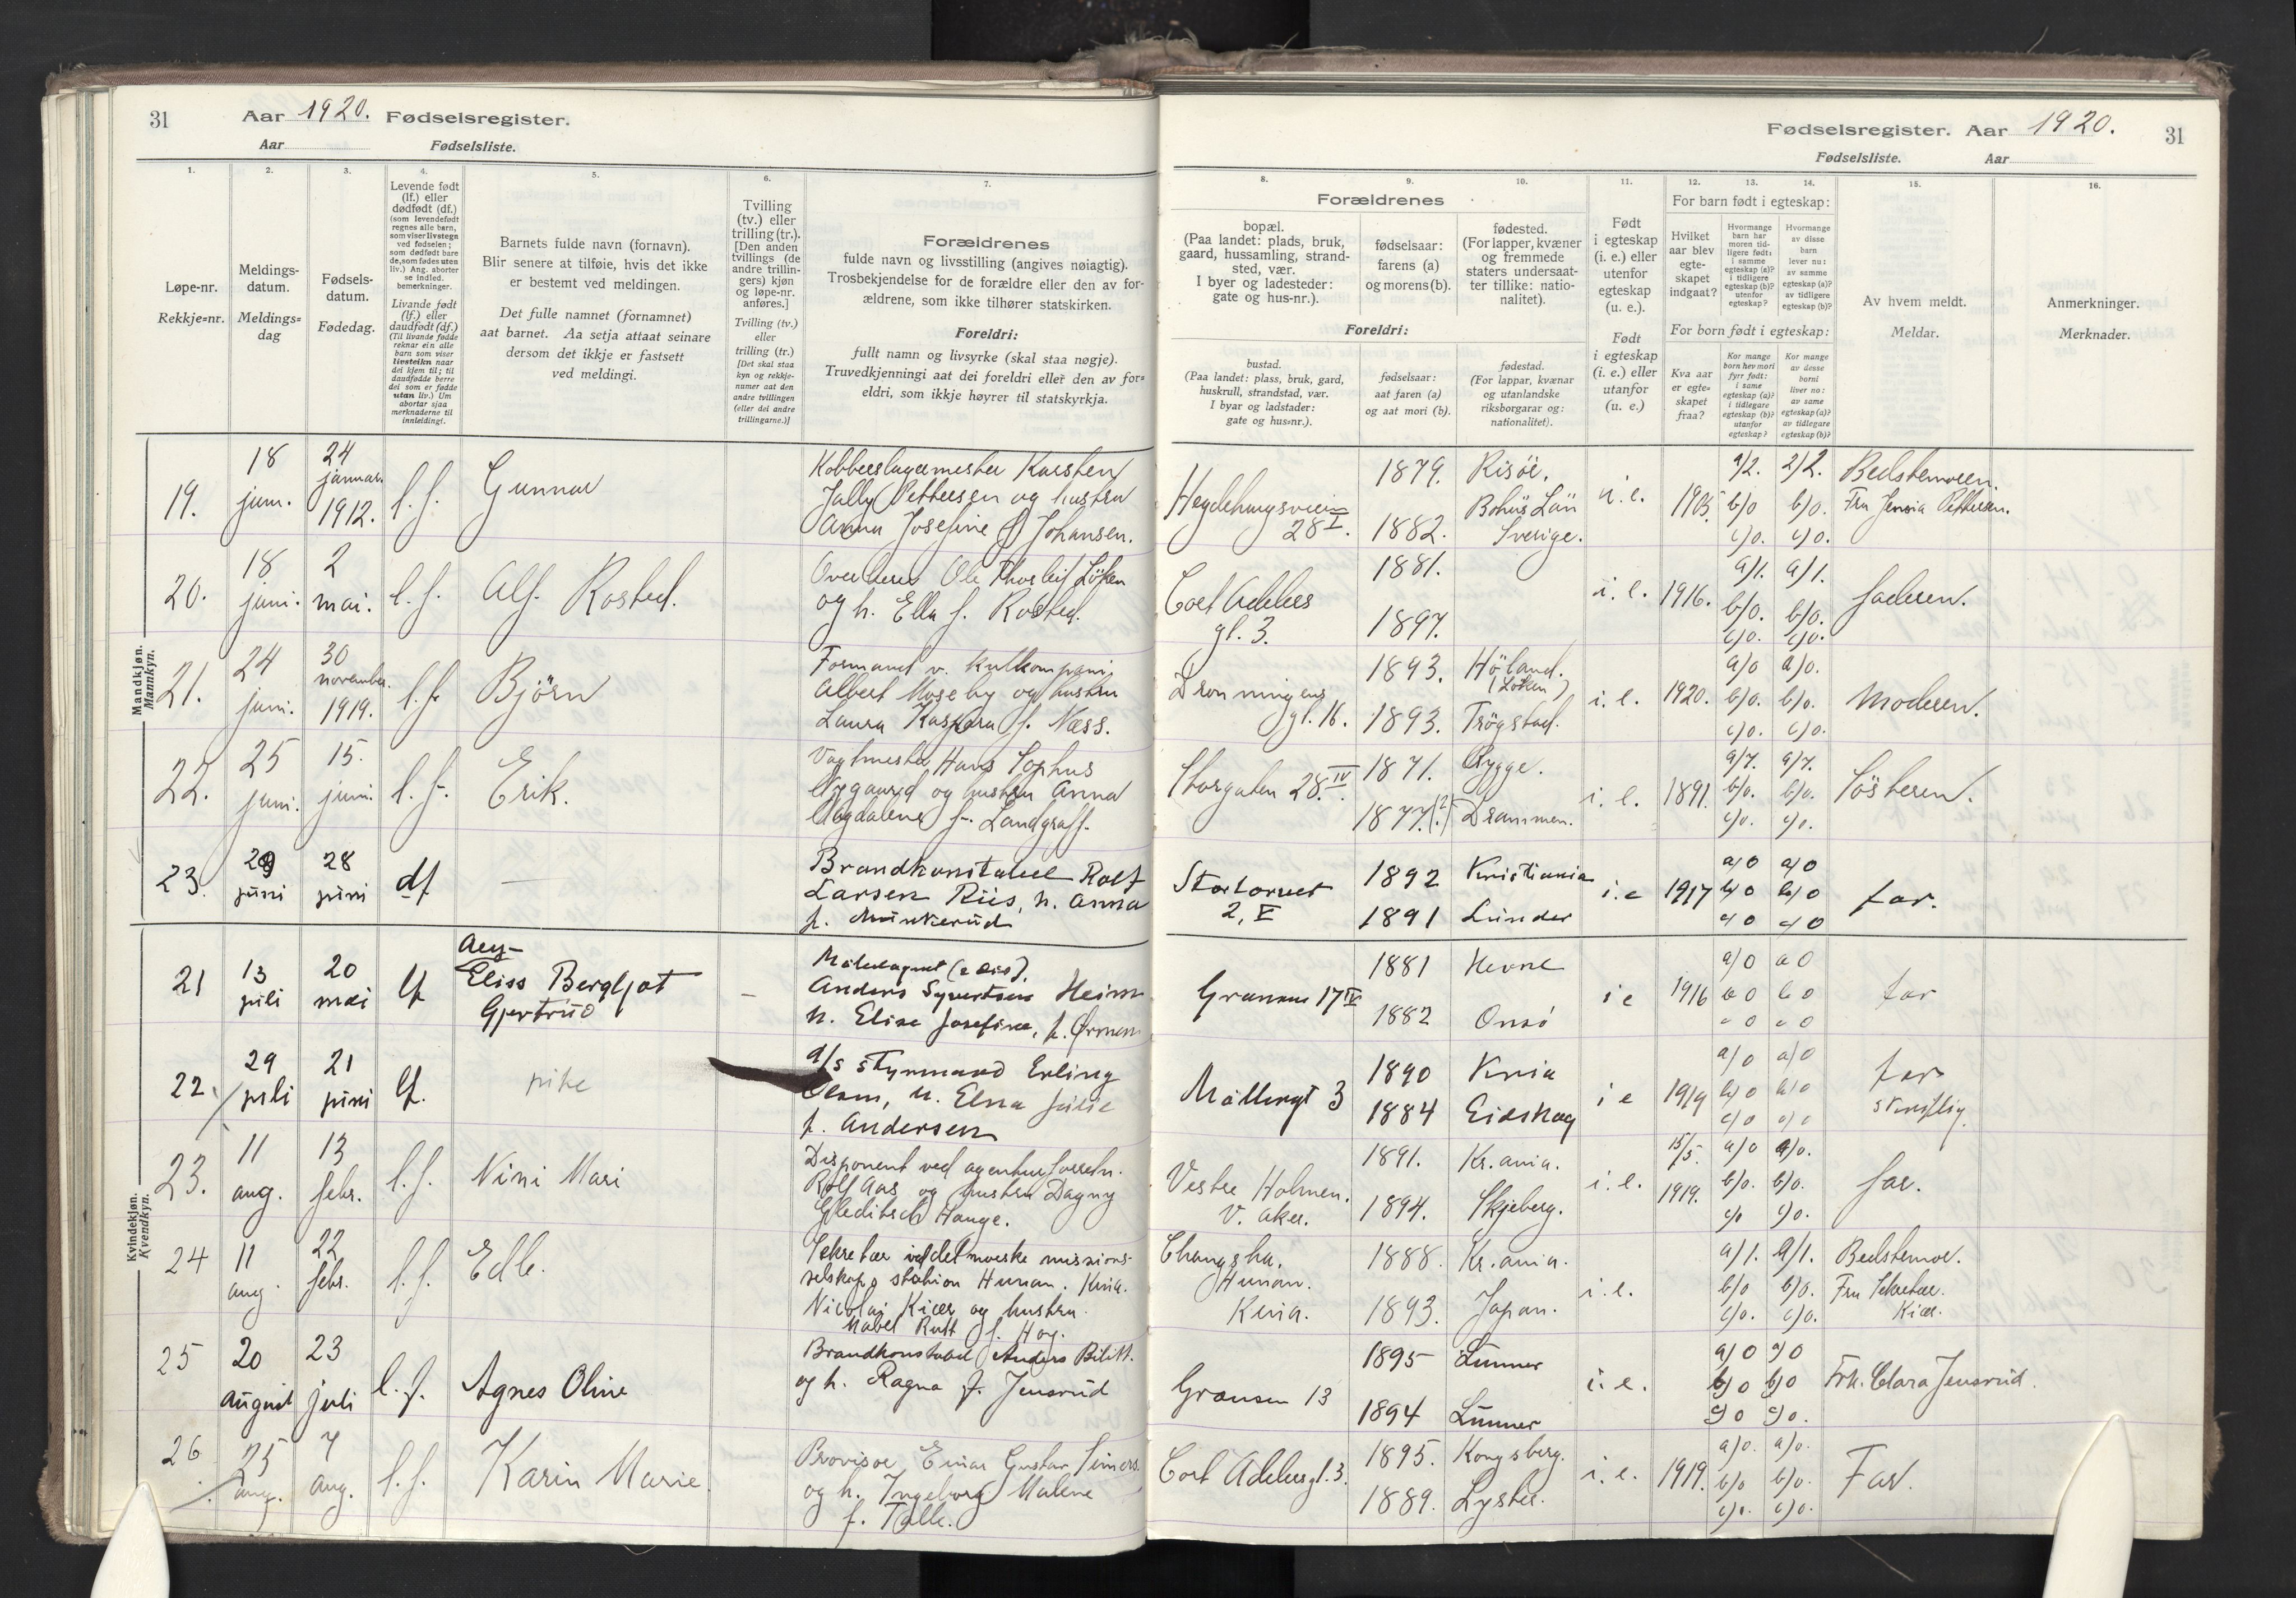 31 Aar 1920. Fødselsregister.
Aar Fødselsliste.
Fødselsregister. Aar 1920. 31
Fødselsliste. Aar
1. 2. 3. 4. 5. 6. 7.
Løpe-nr.
Rekkje=nr.
Meldings-
datum.
Meldings=
dag
Fødsels-
datum.
Fødedag.
Levende født
(lf.) eller
dødfødt (df.)
(som levendefødt
regnes alle barn,
som viser livstegn
ved fødselen;
som dødfødt bare
de, som fødes uten
liv.) Ang. aborter
se indled.
bemerkninger.
Livande født
(lf.) eller
daudfødt (df.)
(Til livande fødde
reknar ein alle
barn som viser
livsteikn naar
dei kjem til; til
daudfødde berre
dei som er fødde
utan liv.) Um
abortar sjaa
merknaderne til
innleidingi.
Barnets fulde navn (fornavn).
Blir senere at tilføie, hvis det ikke
er bestemt ved meldingen.
Det fulle namnet (fornamnet)
aat barnet. Aa setja attaat seinare
dersom det ikkje er fastsett
ved meldingi.
Tvilling
(tv.) eller
trilling (tr.).
[Den anden
tvillings (de
andre trillin-
gers) kjøn
og løpe-nr.
anføres.]
Tvilling (tv.)
eller
trilling (tr.)
[Det skal staa
kyn og rekkje-
numer aat den
andre tvillingen
(eller dei andre
trillingarne.)]
Forældrenes
fulde navn og livsstilling (angives nøiagtig).
Trosbekjendelse for de forældre eller den av for-
ældrene, som ikke tilhører statskirken.
Foreldri:
fullt namn og livsyrke (skal staa nøgje).
Truvedkjenningi aat dei foreldri eller den av for=
eldri, som ikkje høyrer til statskyrkja.
8. 9. 10. 11. 12. 13. 14. 15. 16.
Forældrenes
bopæl.
(Paa landet: plads, bruk,
gaard, hussamling, strand-
sted, vær.
I byer og ladesteder:
gate og hus-nr.).
fødselsaar:
farens (a)
og morens (b).
fødested.
(For lapper, kvæner
og fremmede
staters undersaat-
ter tillike: natio-
nalitet).
Foreldri:
bustad.
(Paa landet: plass, bruk, gard,
huskrull, strandstad, vær.
I byar og ladstader:
gate og hus=nr.).
fødselsaar:
aat faren (a)
og aat mori (b).
fødestad.
(For lappar, kvænar
og utanlandske
riksborgarar og:
nationalitet).
Født
i egteskap
(i. e.) eller
utenfor
egteskap
(u. e.).
Født
i egteskap
(i. e.) eller
utanfor
(u. e.)
For barn født i egteskap:
Hvilket
aar blev
egte-
skapet
indgaat?
Hvormange
barn har
moren tid-
ligere født:
i samme
egteskap (a)?
i tidligere
egteskap (b)?
utenfor
egteskap?
Hvormange
av disse
barn
lever nu:
av samme
egteskap (a)?
av tidligere
egteskap (b)?
For born født i egteskap:
Kva aar
er egte=
skapet
fraa?
Kor mange
born hev mori
fyrr født:
i same
egteskap (a)?
i tidlegare
egteskap (b)?
utanfor
egteskap?
Kor mange
av desse
borni
liver no:
av same
egteskap (a)?
av tidlegare
egteskap (b)?
Av hvem meldt.
Meldar.
Anmerkninger.
Merknader.
Mandkjøn.
Mannkyn.
19. 18 juni. 24 januar. 1912. l.f. Gunnar
Kobberslagermester Karsten
Jally Pettersen og hustru
Anna Josefine f. Johansen.
Hegdehaugsveien 28 I. 1879. Risör.
1882. Bohüs Län Sverige.
1905. a/2. 2/2. b/0 b/0. c/0. c/0.
Bedstemoren.
Fru Jensia Pettersen.
20. 18 juni. 2 mai. l.f. Alf Rosted.
Ole Thorleif Löken
og h. Ella f. Rosted.
Cort Adelers gt. 3. 1881. 1897. i.e. 1916. a/1. a/1. b/0. b/0. c/0. c/0. faderen.
21. 24 juni. 30 november. 1919. l.f. Björn
Formand v. kulkompani
Albert Moseby og hustru
Laura Kaspara f. Næss.
Dronningens gt. 16. 1893. Höland. (Löken)
1893. Trögstad. i.e. 1920. a/0 a/0. b/0. b/0. c/0. c/0. Moderen.
22. 25 juni. 15. juni. l.f. Erik.
Vagtmester Hans Sophus
Nygaard og hustru Anna
Magdalene f. Landgraff.
Storgaten 28. IV 1871. Rygge.
1877.(?) Drammen. i.e. 1891. a/7. a/7. b/0. b/0. c/0. c/0. Søsteren.
23. 29 juni 28 juni df —
Brandkonstabel Rolf
Larsen Riis, h. Anna
f. Munkerud
Stortorvet 2, V 1892 Kristiania
1891 Lunder i.e 1917 a/0 a/0 b/0 b/0 c/0 c/0 far.
Kvindekjøn.
Kvendkyn.
21 13 juli 20 mai lf
Eliss Bergljot
Gjertrud —
Anders Syvertsen Heim
h. Elise Josefine, f.
Grænsen 17 IV 1881 Hevne
1882 Onsø i e 1916 a/0 a 0 b 0 b 0 c 0 c 0 far
22. 29 juli 21 juni lf. pike
a/s Styrmand Erling
Olsen, h. Elna Julie
f. Andersen
Møllergt 3 1890 Kria
1884 Eidskog i e 1919 a/0 a/0 b/0 b/0 c/0 c/0 far
skriftlig.
23. 11 aug. 13 febr. l.f. Nini Mari
Disponent ved agenturforretn.
Rolf Aas og hustru Dagny
Gleditsch Hauge.
Vestre Holmen. V. Aker. 1891. Kr.ania.
1894. Skjeberg. i.e. 15/5. 1919. a/0 a/0. b/0. b/0. c/0 c/0. far.
24 11 aug. 22 febr. l.f. Edle.
Sekretær ved det norske missions-
selskaps station Hunan. Kina.
Nicolaj Kiær og hustru
Mabel Rutt f. Hog.
Changsha. Hunan. Kina. 1888. Kr.ania.
1893. Japan. i.e. a/1. a/1. b/0 b/0. c/0. c/0. Bedstemor.
Fru Sekretær
Kiær.
25 20 august 23 juli l.f. Agnes Oline
Brandkonstabel Anders Bilitt.
og h. Ragna f. Jensrud
Grænsen 13 1895 Lunner
1894 Lunner i.e. a/0 a/0 b/0 b/0 c/0 c/0. Frk. Clara Jensrud.
26 25 aug. 7 aug. l.f. Karin Marie.
Provisor Einar Gustav
og h. Ingeborg Malene
f. Talle.
Cort Adelersgt. 3. 1895. Kongsberg.
1889. Lyster. i.e. 1919. a/0. a/0. b/0 b/0. c/0. c/0. Far.